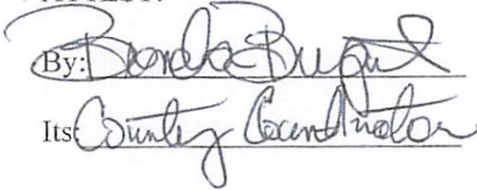 By: Brenda
Its: County Coordinator